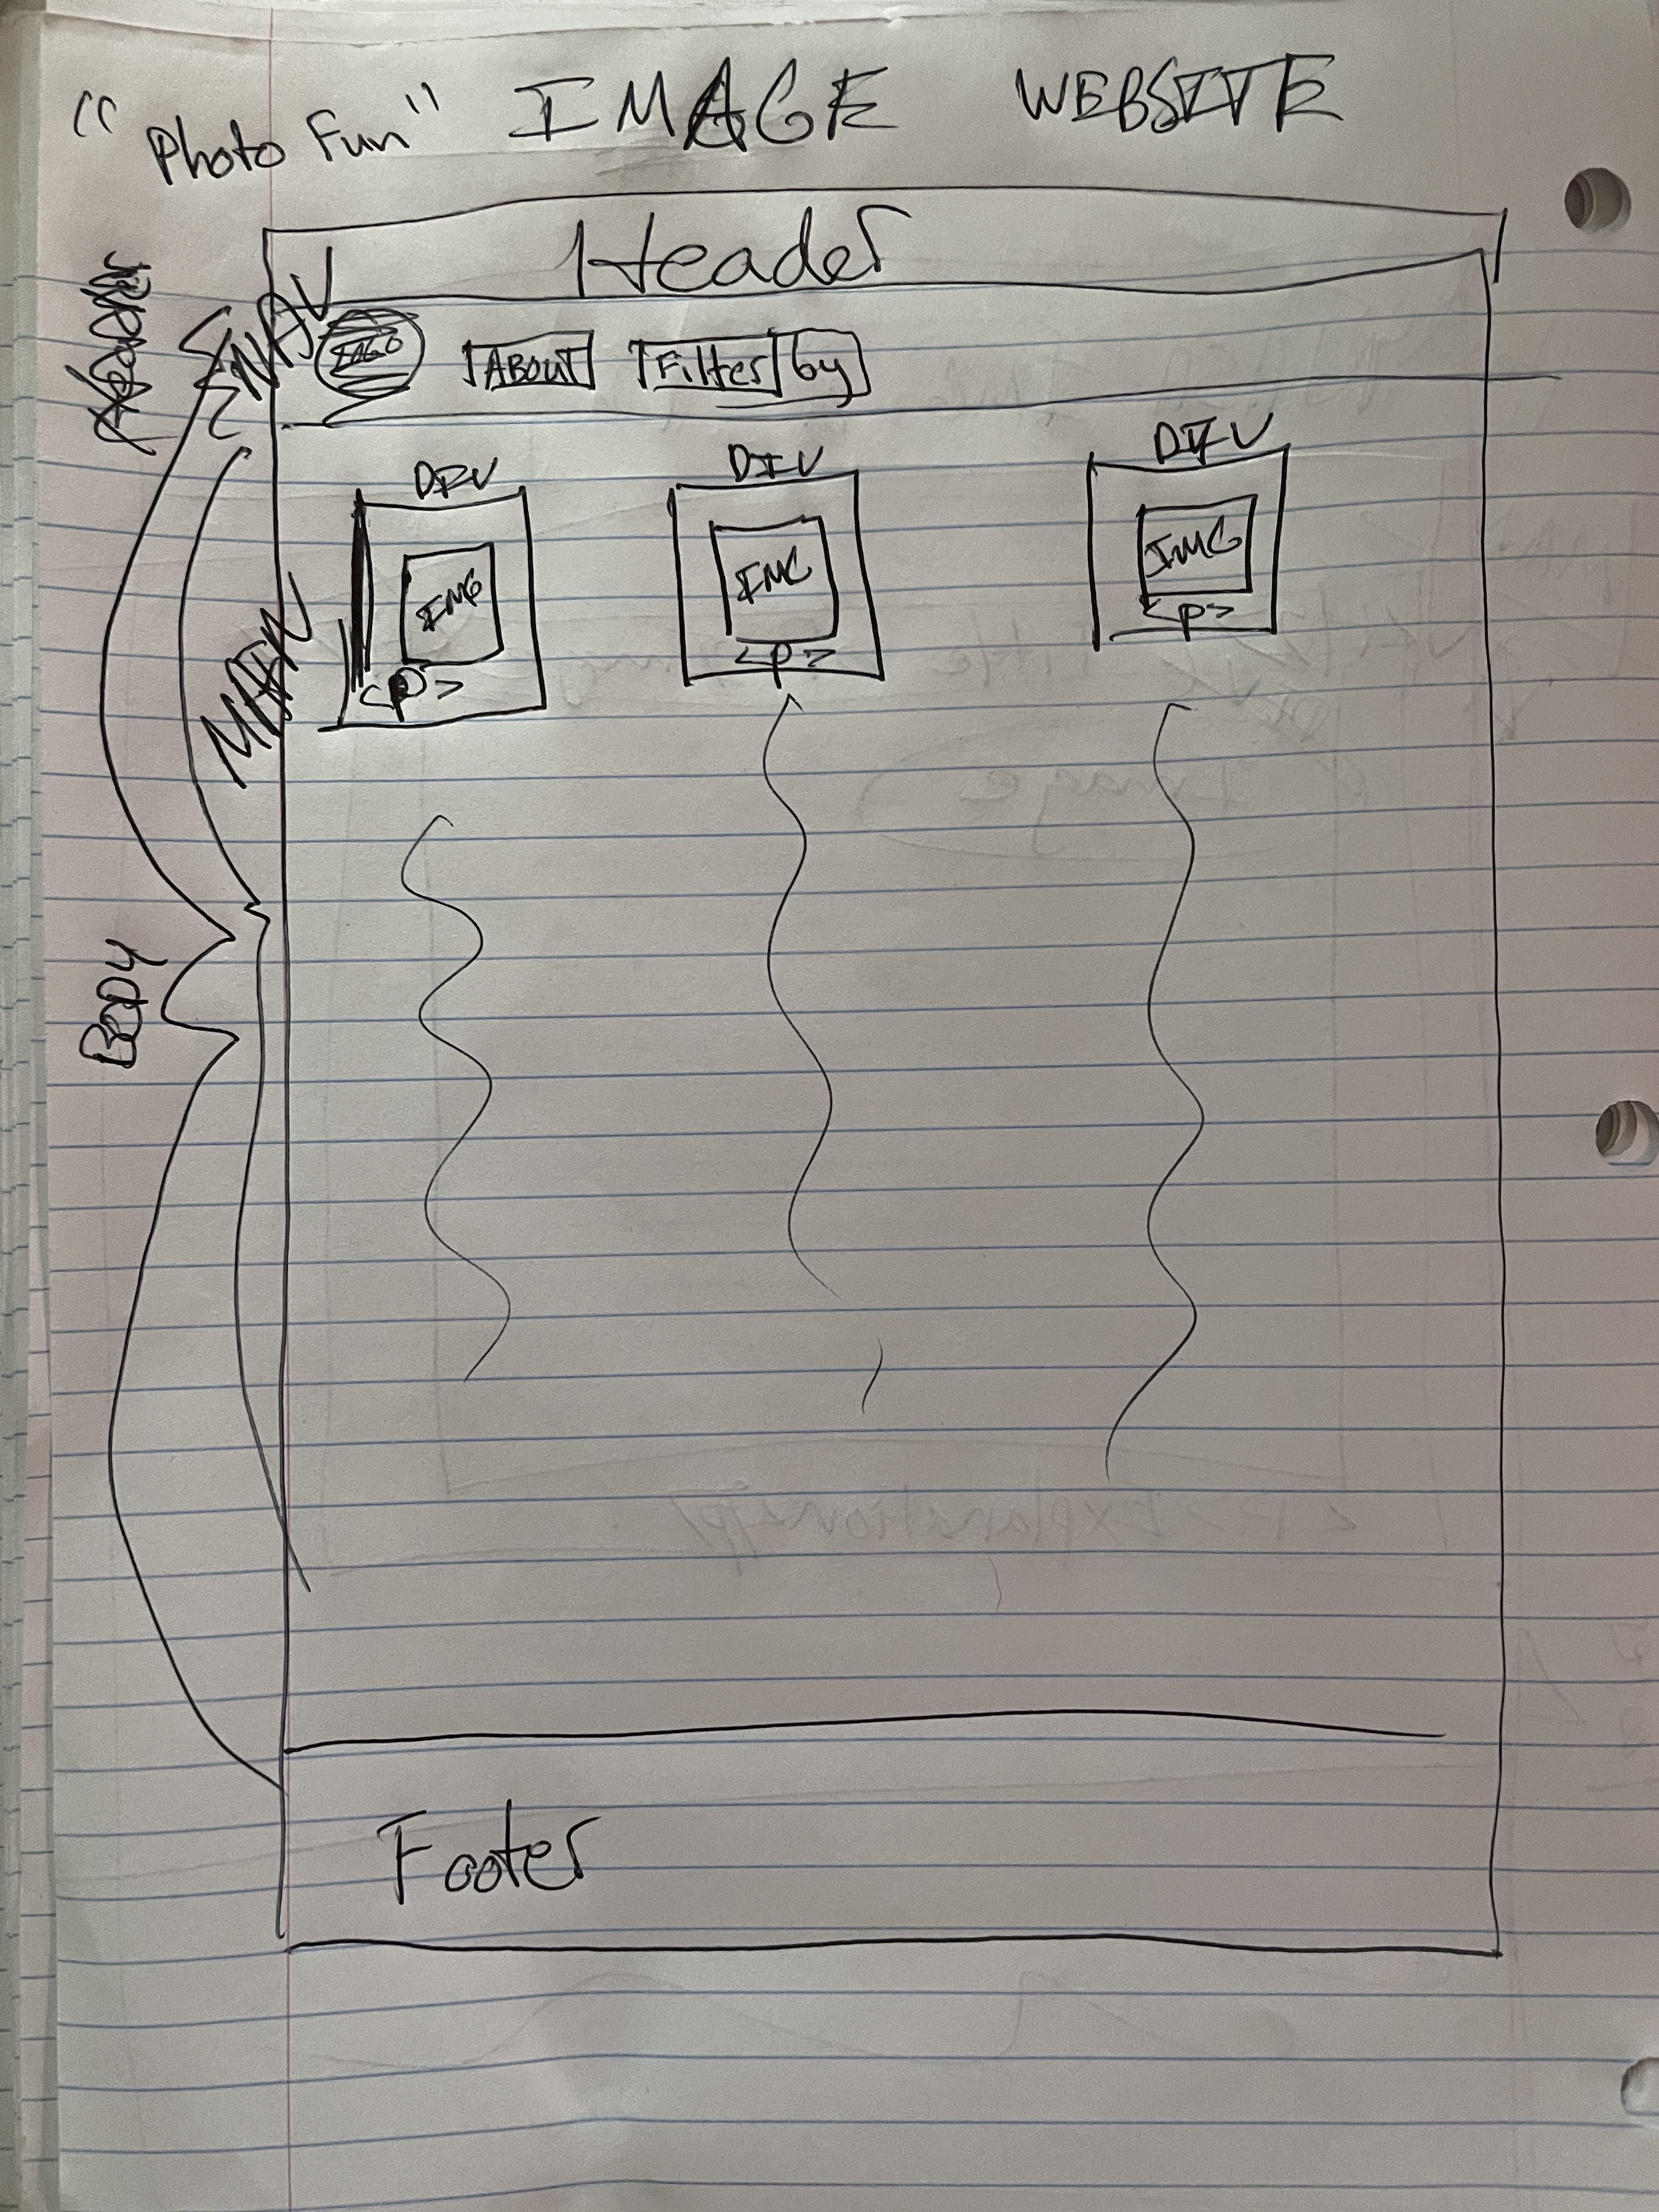 "Photo Fun" IMAGE WEBSITE
Header
NAV
LOGO ABOUT Filter by
DIV DIV DIV
IMG IMG IMG
<p> <p> <p>
MAIN
BODY
Footer